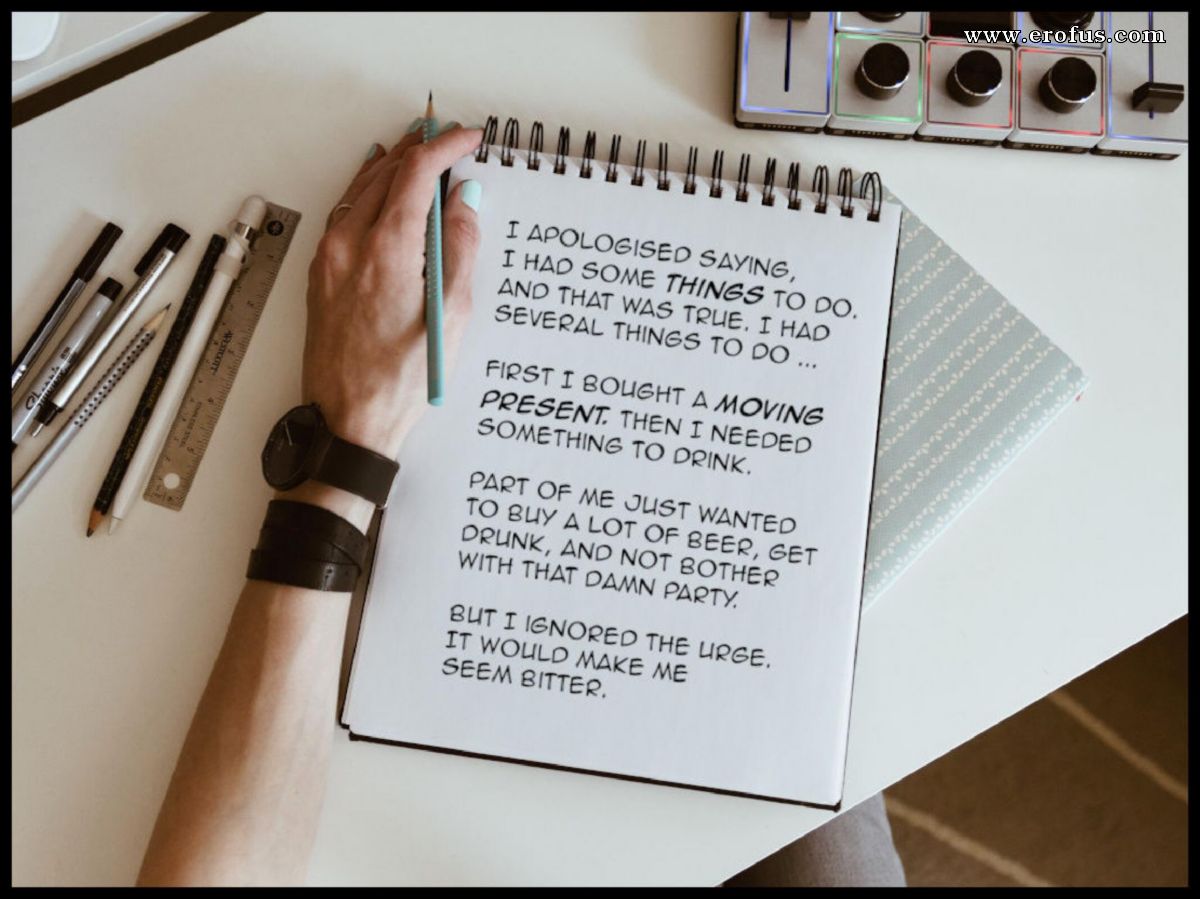 www.erofus.com
I APOLOGISED SAYING,
I HAD SOME THINGS TO DO.
AND THAT WAS TRUE. I HAD
SEVERAL THINGS TO DO ...
FIRST I BOUGHT A MOVING
PRESENT. THEN I NEEDED
SOMETHING TO DRINK.
PART OF ME JUST WANTED
TO BUY A LOT OF BEER, GET
DRUNK, AND NOT BOTHER
WITH THAT DAMN PARTY.
BUT I IGNORED THE URGE.
IT WOULD MAKE ME
SEEM BITTER.